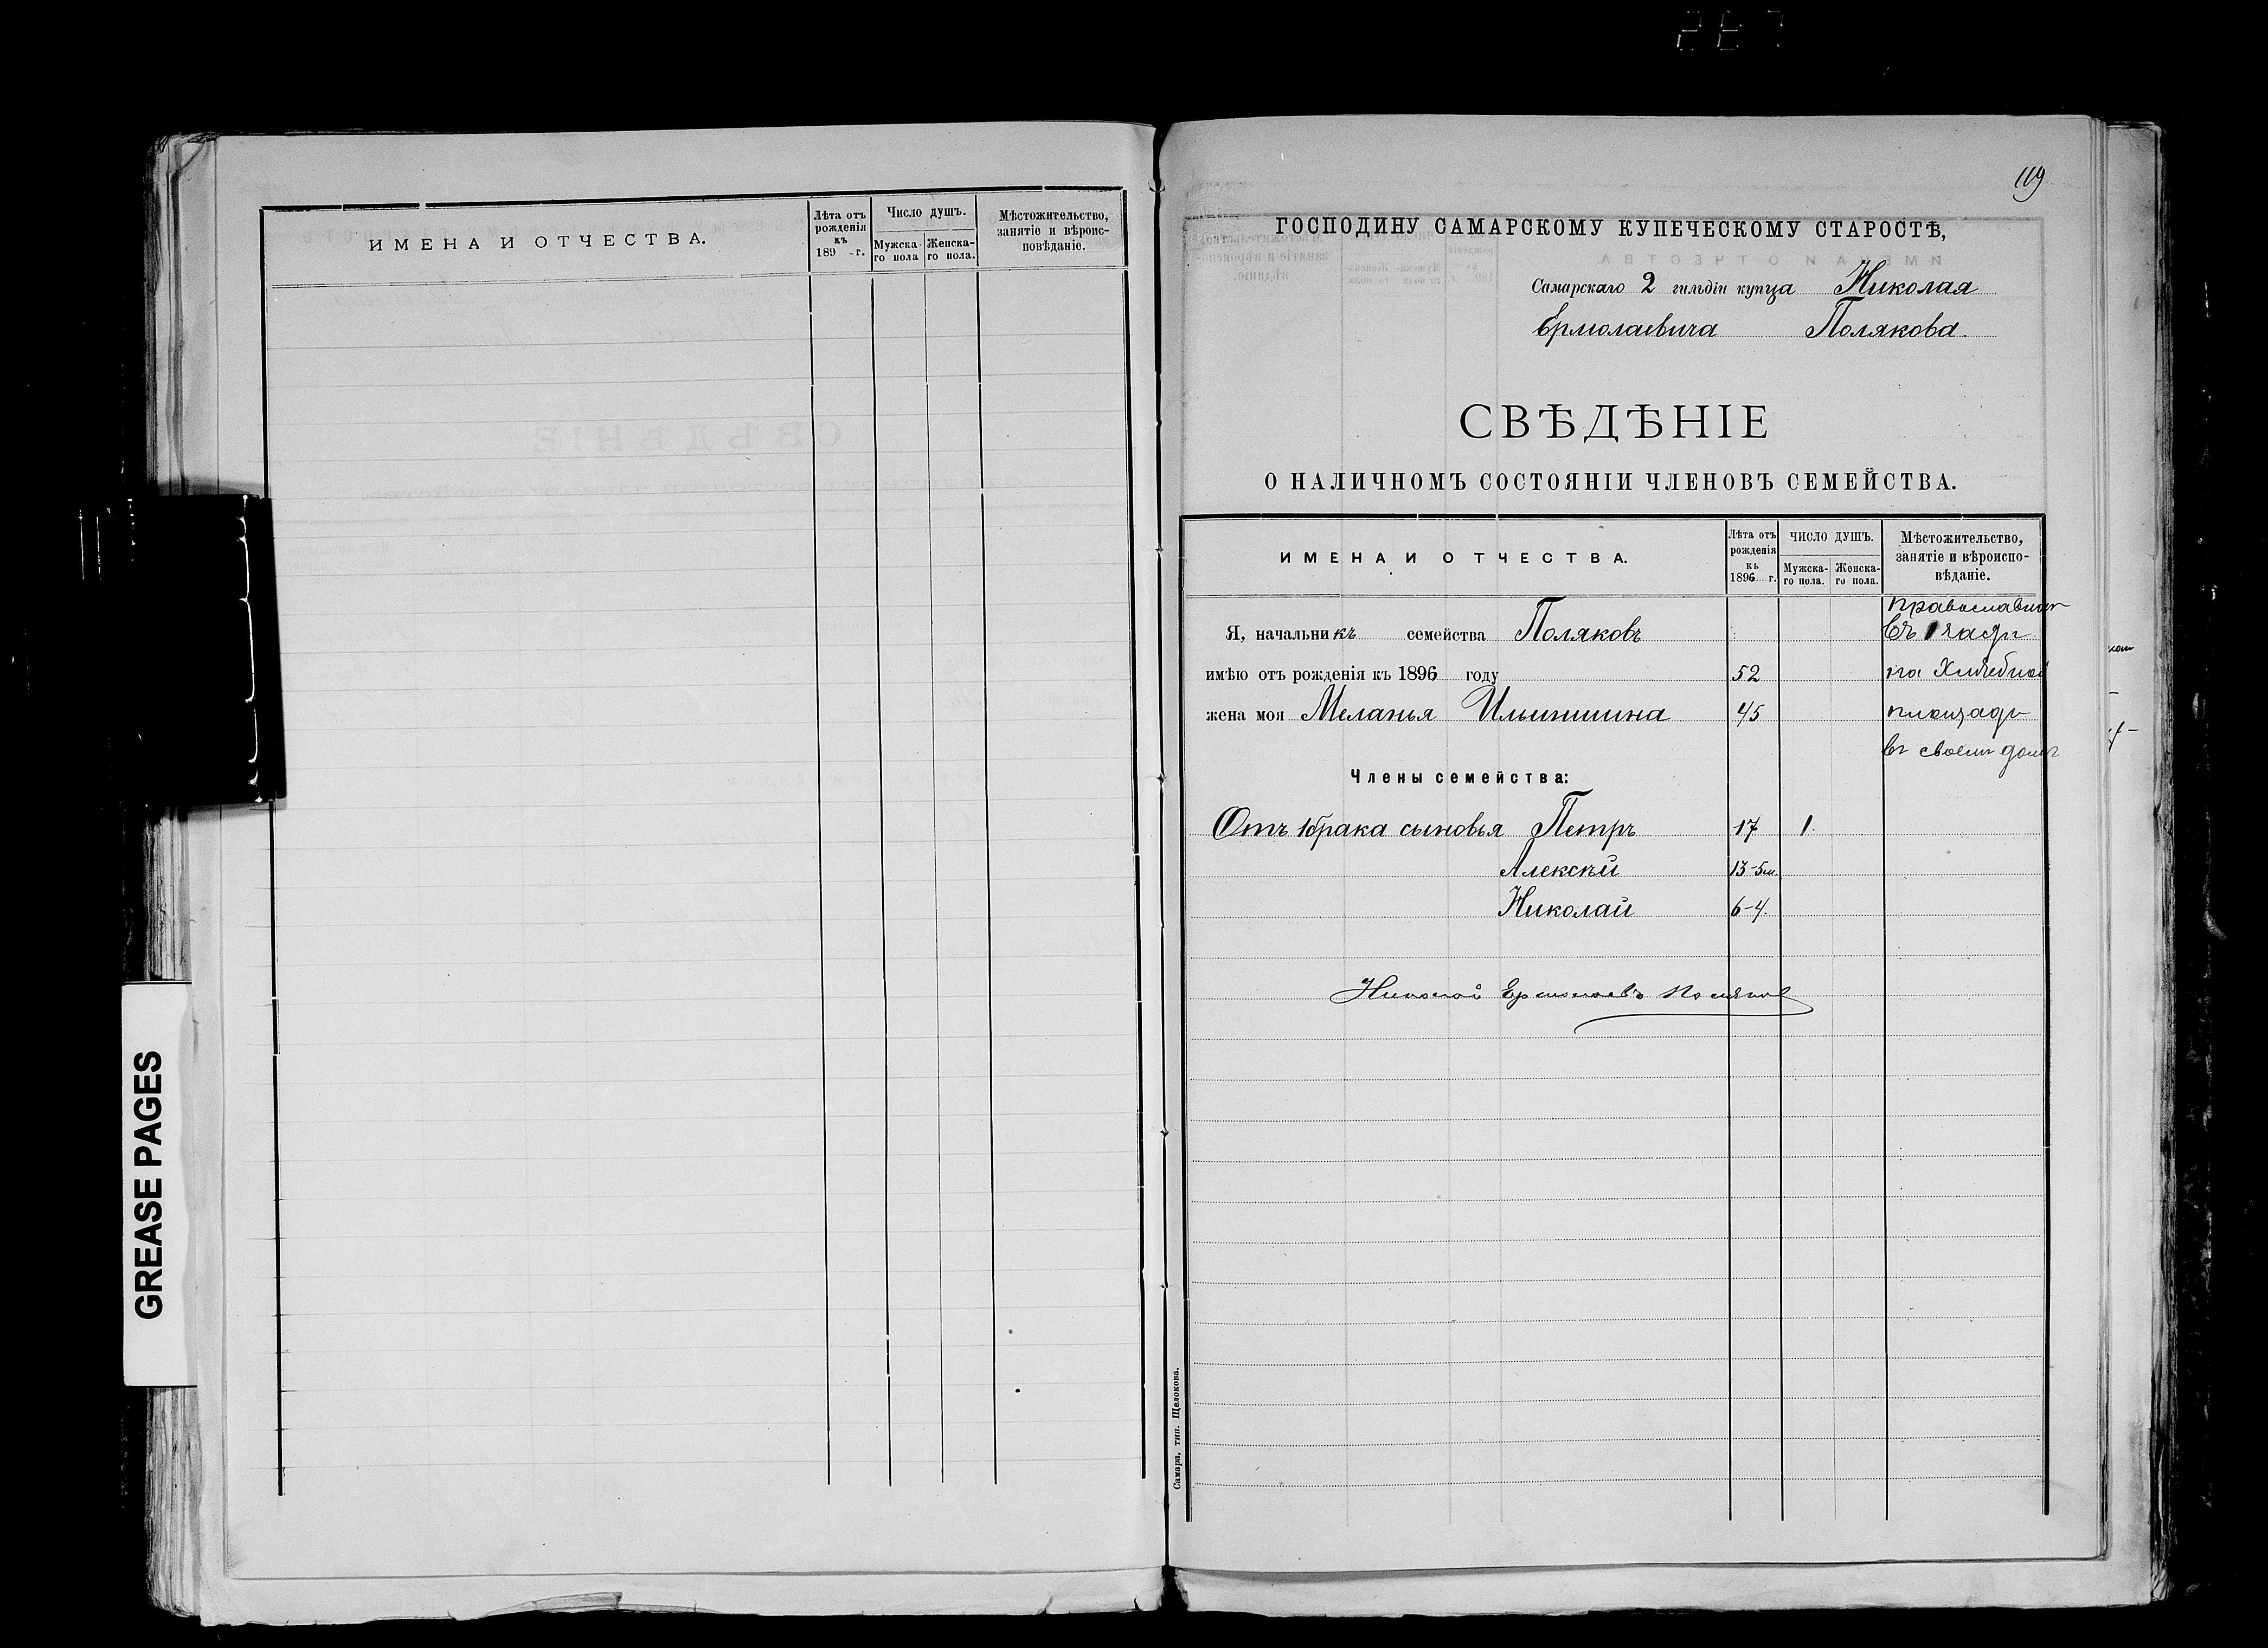 ИМЕНА И ОТЧЕСТВА.
Лѣта отъ рожденія къ 189 г.
Число душъ.
Мужска-го пола
Женска-го пола.
Мѣстожительство, занятіе и вѣроис-повѣданіе.
GREASE PAGES
119
ГОСПОДИНУ САМАРСКОМУ КУПЕЧЕСКОМУ СТАРОСТѢ,
Самарскаго 2 гильдіи купца Николая
Ермолаевича Полякова.
СВѢДѢНІЕ
О НАЛИЧНОМЪ СОСТОЯНІИ ЧЛЕНОВЪ СЕМЕЙСТВА.
ИМЕНА И ОТЧЕСТВА.
Лѣта отъ рожденія къ 1896 г.
ЧИСЛО ДУШЪ.
Мужска-го пола.
Женска-го пола.
Мѣстожительство, занятіе и вѣроиспо-вѣданіе.
Православнаг
Я, начальникъ семейства Поляковъ въ 1 части
имѣю отъ рожденія къ 1896 году 52 на Хлѣбной
жена моя Меланья Ильинишна 45 площади
въ своемъ домѣ
Члены семейства:
Отъ 1 брака сыновья Петръ 17 1.
Алексѣй 13-5м.
Николай 6-4.
Николай Ермолаевъ Поляков
Самара, тип. Щелокова.